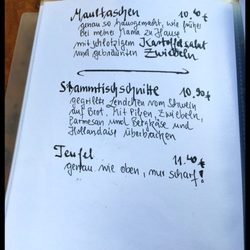 Maultaschen 10.40€
genau so hausgemacht, wie früher
bei meine Mama zu Hause
mit schlotzigem Kartoffelsalat
und gebräunten Zwiebeln
Stammtischschnitte 10.90€
gegrillte Lendchen vom Schwein
auf Brot. Mit Pilzen, Zwiebeln,
Parmesan und Bergkäse und
Hollandaise überbacken
Teufel 11.40€
genau wie oben, nur scharf!